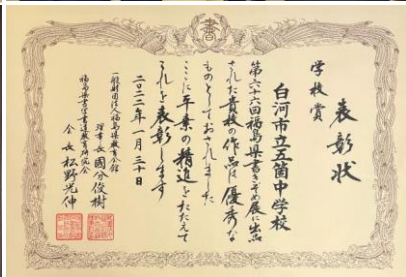 書
表彰状
学校賞
白河市立五箇中学校
第六十六回福島県書きぞめ展に出品
された貴校の作品は優秀な
ものとしておされました
ここに平素の精進をたたえて
これを表彰します
二〇二二年一月三十日
一般財団法人福島県教育会館
理事長 國分俊樹
福島県書写書道教育研究会
会長 松野光伸